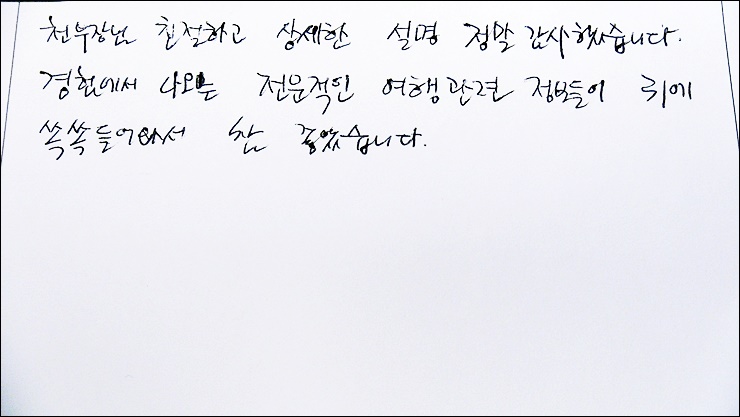 천부장님 친절하고 상세한 설명 정말 감사했습니다.
경험에서 나오는 전문적인 여행관련 정보들이 귀에
쏙쏙 들어와서 참 좋았습니다.